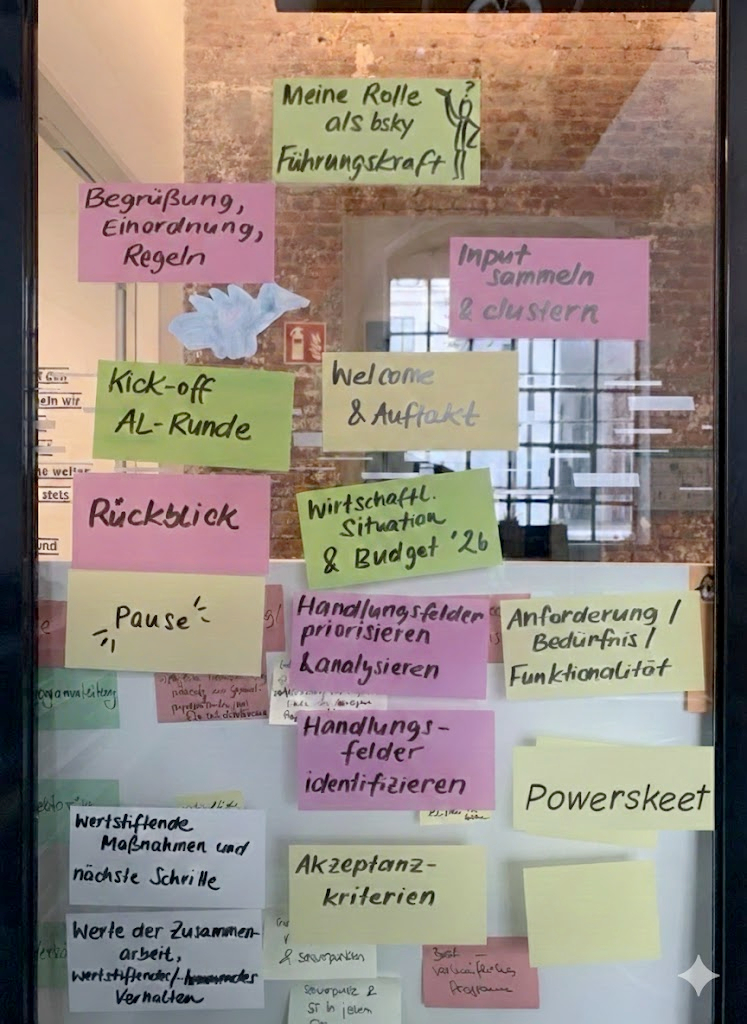 Meine Rolle
als bsky
Führungskraft
?
Begrüßung,
Einordnung,
Regeln
Input
sammeln
& clustern
Kick-off
AL-Runde
Welcome
& Auftakt
eln wir
stels
und
Rückblick
Wirtschaftl.
Situation
& Budget '26
Pause
Handlungsfelder
priorisieren
& analysieren
Anforderung /
Bedürfnis /
Funktionalität
Handlungs-
felder
identifizieren
Powerskeet
Wertstiftende
Maßnahmen und
nächste Schritte
Akzeptanz-
kriterien
Werte der Zusammen-
arbeit,
wertstiftendes/
Verhalten
&
ST in jedem